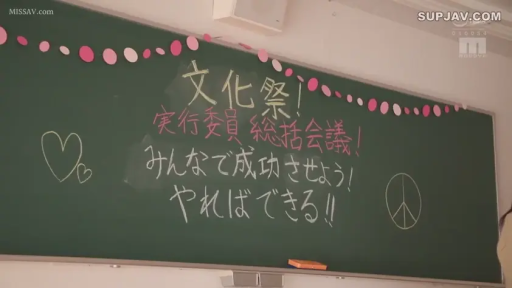 MISSAV.com
SUPJAV.COM
文化祭!
実行委員 総括会議!
みんなで成功させよう!
やればできる!!